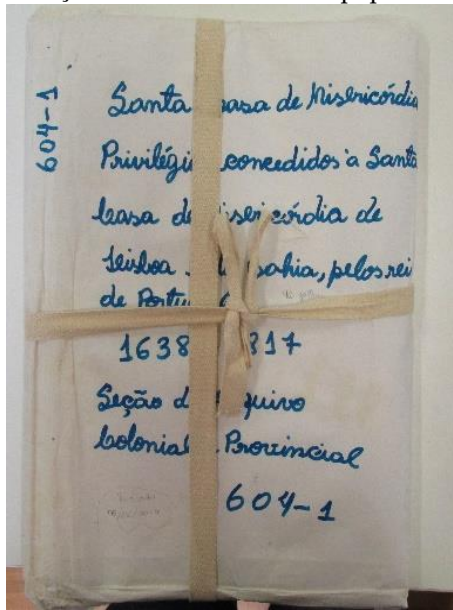 604-1
Santa Casa de Misericórdia
Privilégi concedidos à Santa
Casa d isericórdia de
Lisboa ahia, pelos rei
de Portu
1638 817
Seção d quivo
Colonial Provincial
604-1